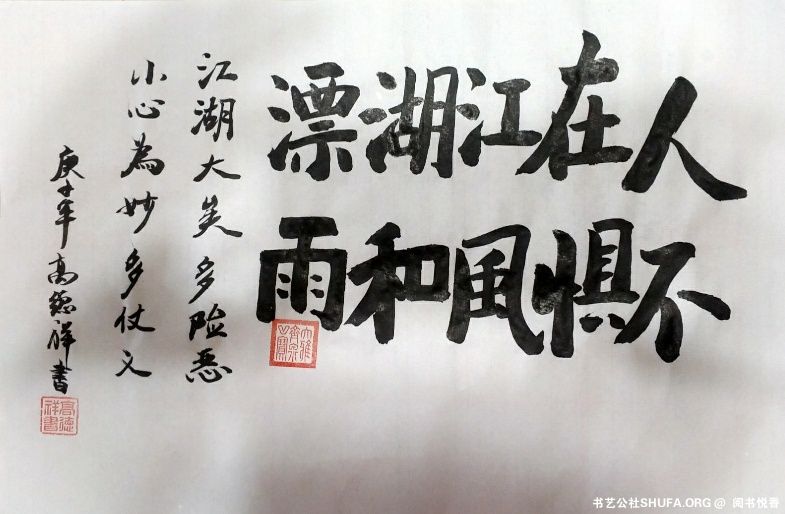 人在江湖漂
不惧風和雨
江湖大矣多险恶
小心為妙多仗义
庚子年高德祥書
高德祥書
书艺公社SHUFA.ORG @ 闻书悦香